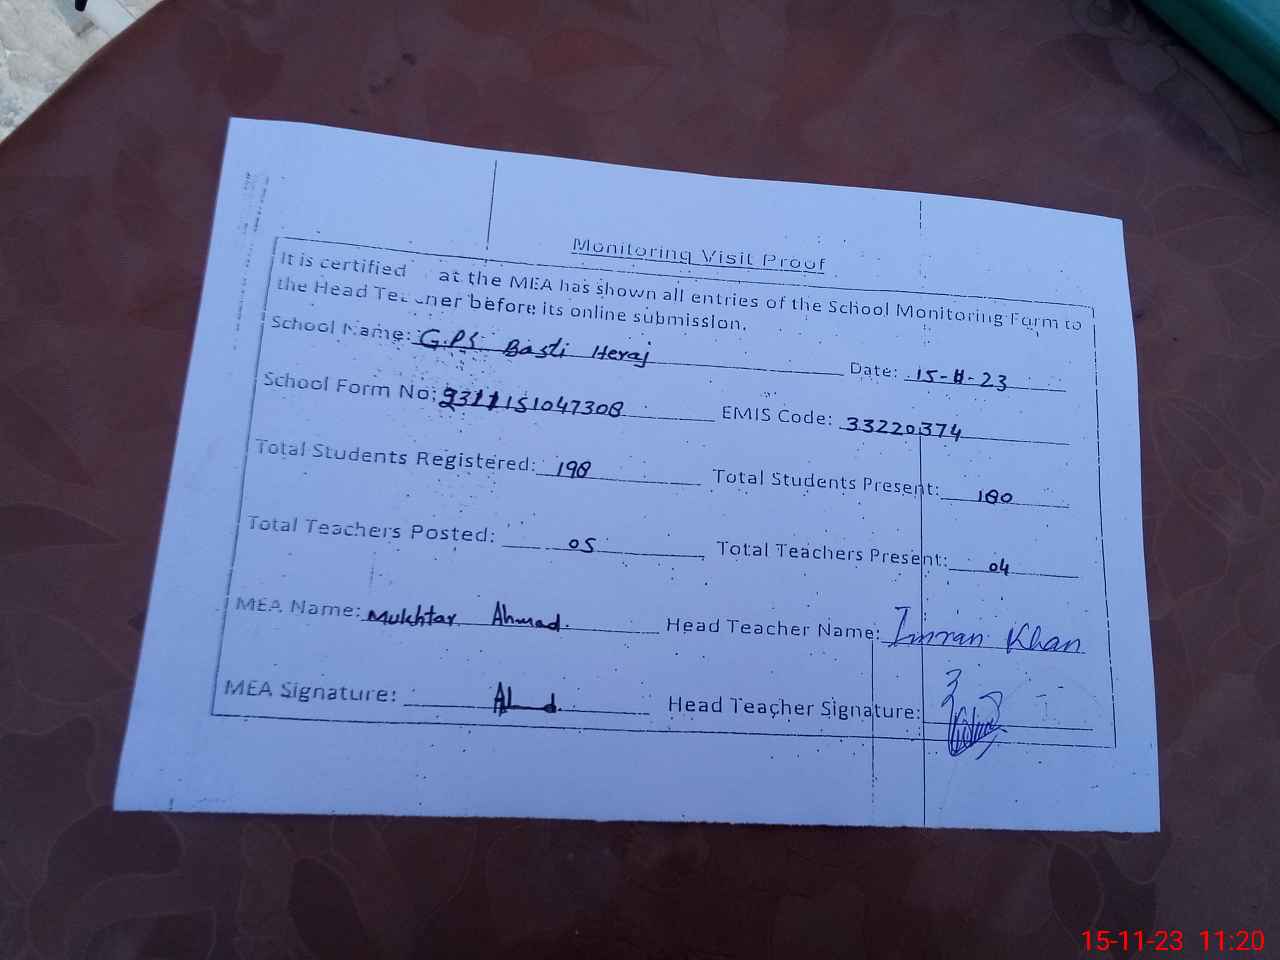 Monitoring Visit Proof
It is certified at the MEA has shown all entries of the School Monitoring Form to
the Head Teacher before its online submission.
School Name: G.P.S Basti Heraj Date: 15-11-23
School Form No: 2311151047308 EMIS Code: 33220374
Total Students Registered: 198 Total Students Present: 180
Total Teachers Posted: 05 Total Teachers Present: 04
MEA Name: Mukhtar Ahmad. Head Teacher Name: Imran Khan
MEA Signature: Head Teacher Signature:
15-11-23 11:20